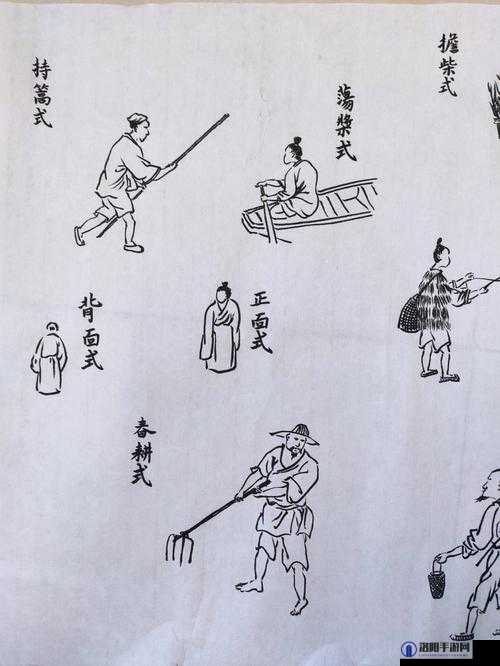 擔柴式
蕩槳式
持篙式
正面式
背面式
春耕式
洛阳手游网